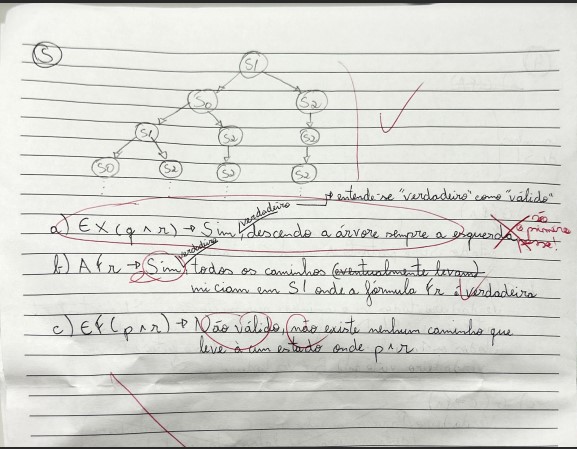 5
S1
S0 S2
S1 S2 S2
S0 S2 S2 S2
↱ entende-se "verdadeiro" como "válido"
verdadeiro
a) EX(q ∧ r) → Sim, descendo a árvore sempre a esquerda
só o primeiro
verdadeiro
b) AFr → Sim, todos os caminhos (eventualmente levam)
iniciam em S1 onde a fórmula Fr é verdadeira
c) EF(p ∧ r) → Não válido, não existe nenhum caminho que
leve à um estado onde p ∧ r